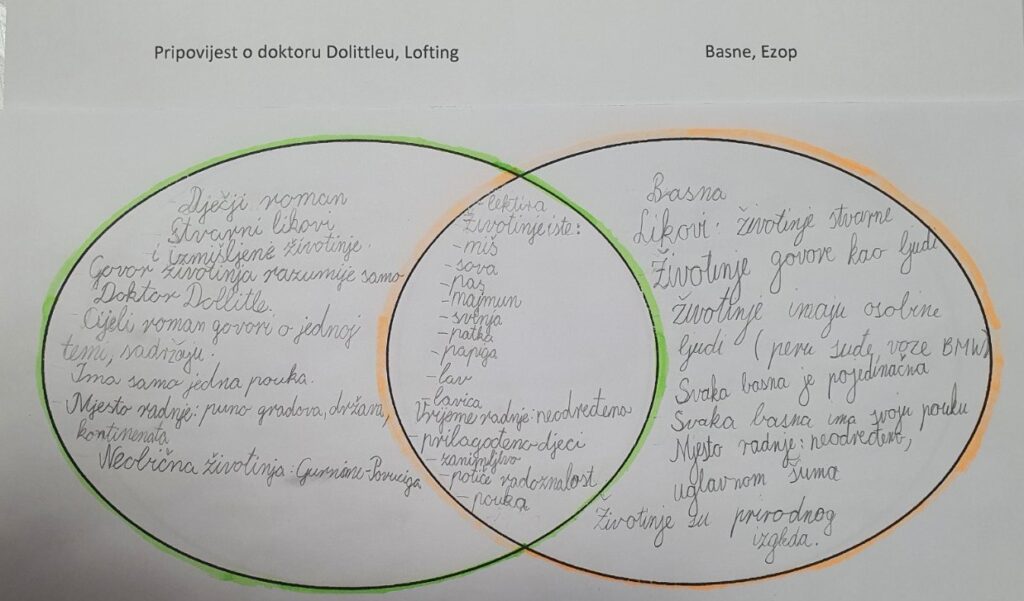 Pripovijest o doktoru Dolittleu, Lofting
Basne, Ezop
Dječji roman
Stvarni likovi
i izmišljene životinje.
Govor životinja razumije samo
Doktor Dollitle.
- Cijeli roman govori o jednoj
temi, sadržaju.
Ima samo jedna pouka.
- Mjesto radnje: puno gradova, država,
kontinenata
Neobična životinja: Gurnime-Povuciga
- lektira
Životinje iste:
- miš
- sova
- pas
- majmun
- svinja
- patka
- papiga
- lav
- lavica
Vrijeme radnje: neodređeno
- prilagođeno djeci
- zanimljivo
- potiče radoznalost
- pouka
Basna
Likovi: životinje stvarne
Životinje govore kao ljudi
životinje imaju osobine
ljudi (peru suđe, voze BMW)
Svaka basna je pojedinačna
Svaka basna ima svoju pouku
Mjesto radnje: neodređeno,
uglavnom šuma
Životinje su prirodnog
izgleda.